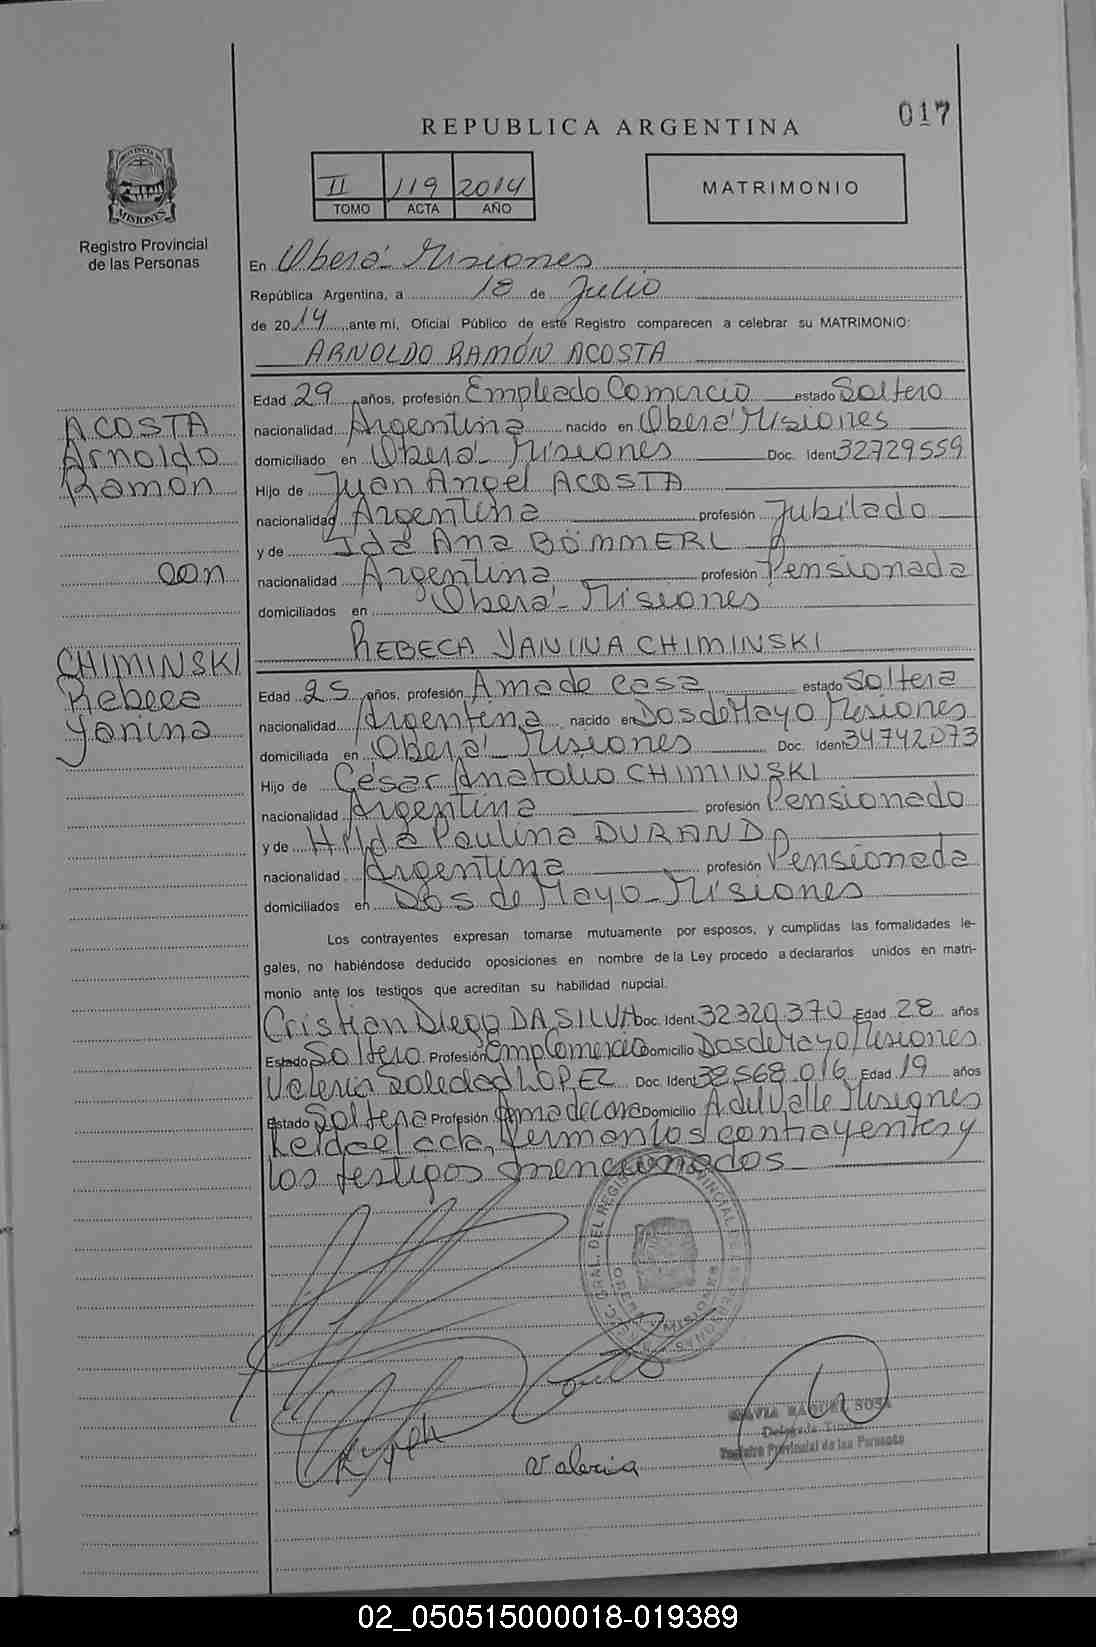 017
REPUBLICA ARGENTINA
PROVINCIA DE
MISIONES
Registro Provincial
de las Personas
II 119 2014
TOMO ACTA AÑO
MATRIMONIO
En Oberá - Misiones
República Argentina, a 18 de Julio
de 2014 ante mi, Oficial Público de este Registro comparecen a celebrar su MATRIMONIO:
ARNOLDO RAMÓN ACOSTA
ACOSTA
Arnoldo
Ramón
con
CHIMINSKI
Rebeca
Yanina
Edad 29 años, profesión Empleado Comercio estado Soltero
nacionalidad Argentina nacido en Oberá Misiones
domiciliado en Oberá - Misiones Doc. Ident 32729559
Hijo de Juan Angel ACOSTA
nacionalidad Argentina profesión Jubilado
y de Ida Ana BÖMMERL
nacionalidad Argentina profesión Pensionada
domiciliados en Oberá - Misiones
REBECA YANINA CHIMINSKI
Edad 25 años, profesión Ama de casa estado Soltera
nacionalidad Argentina nacido en Dos de Mayo Misiones
domiciliada en Oberá - Misiones Doc. Ident 34742073
Hijo de César Anatolio CHIMINSKI
nacionalidad Argentina profesión Pensionado
y de Hilda Paulina DURAND
nacionalidad Argentina profesión Pensionada
domiciliados en Dos de Mayo - Misiones
Los contrayentes expresan tomarse mutuamente por esposos, y cumplidas las formalidades le-
gales, no habiéndose deducido oposiciones en nombre de la Ley procedo a declararlos unidos en matri-
monio ante los testigos que acreditan su habilidad nupcial.
Cristian Diego DA SILVA Doc. Ident 32320.370 Edad 28 años
Estado Soltero Profesión Emp Comercio Domicilio Dos de Mayo Misiones
Valeria Soledad LOPEZ Doc. Ident 38.568.016 Edad 19 años
Estado Soltera Profesión Ama de casa Domicilio A del Valle Misiones
Leida el acta, firman los contrayentes y
los testigos mencionados
Valeria
RAQUEL SOSA
Delegada Titular
Registro Provincial de las Personas
02_050515000018-019389